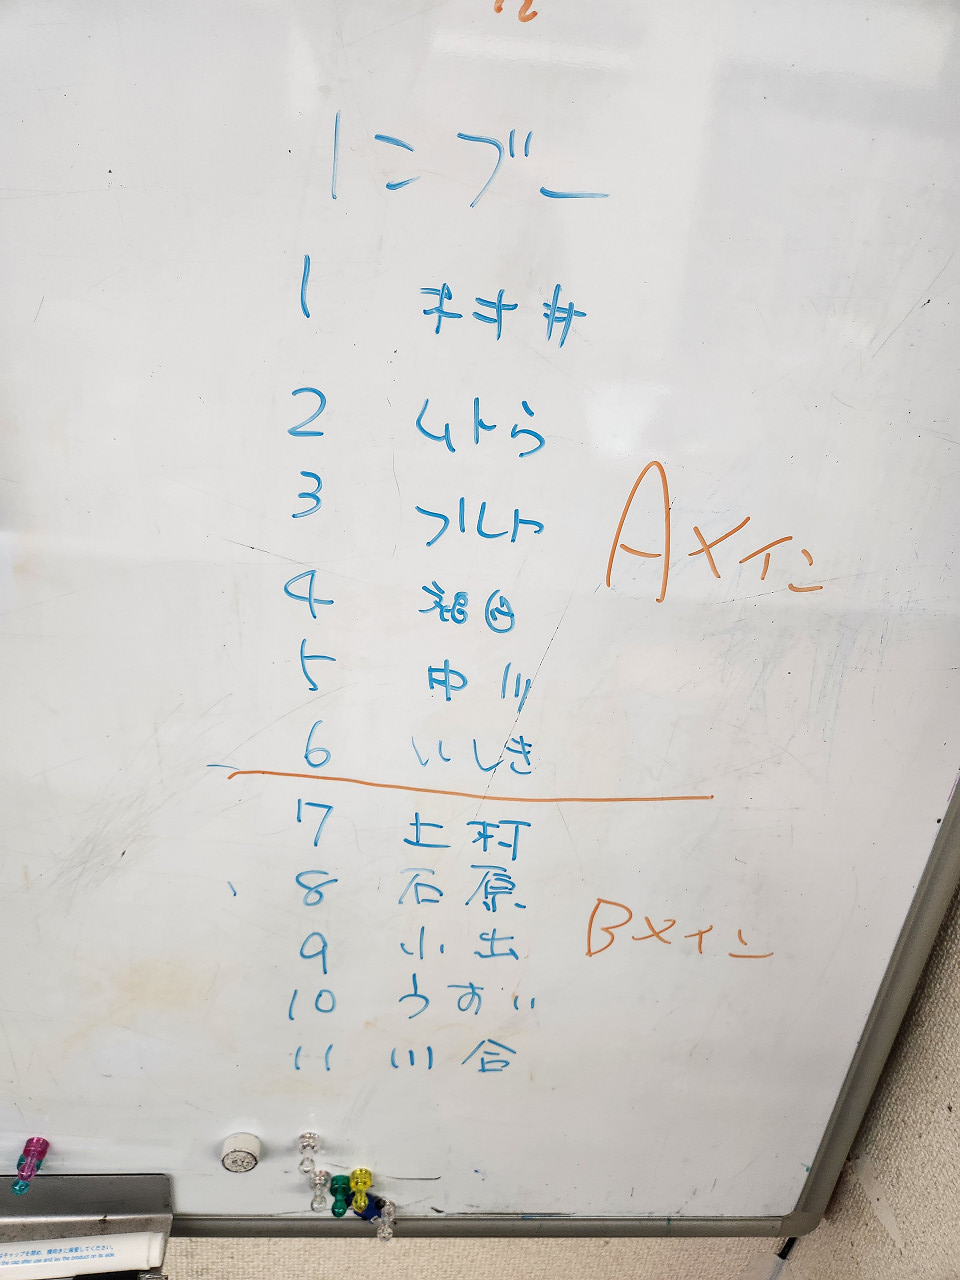 1ンブー
1 ネオ井
2 ムトう
3 フルト
4
5 中川
6 いしき
Aメイン
7 上村
8 石原
9 小出
10 うすい
11 川合
Bメイン